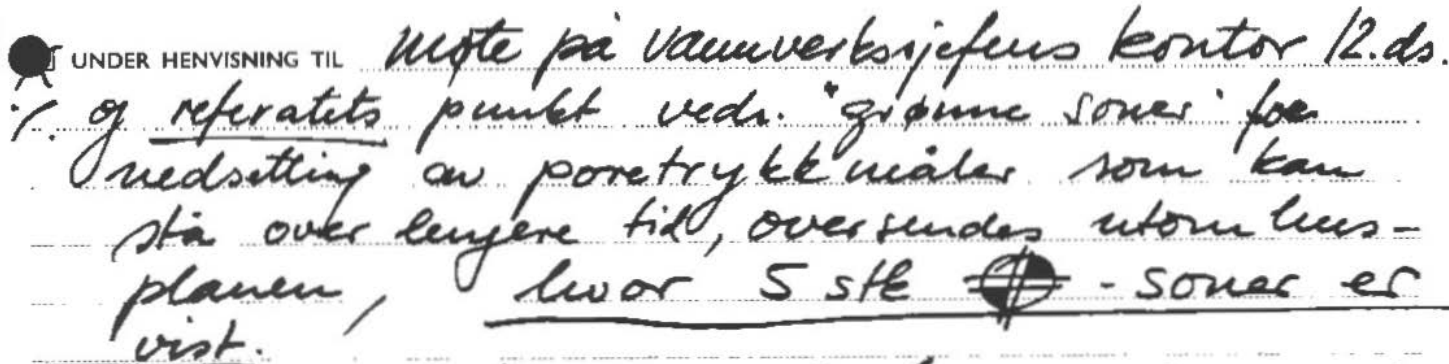 UNDER HENVISNING TIL møte på vannverksjefens kontor 12.ds.
./. og referatets punkt vedr. "grønne soner" for
nedsetting av poretrykkmåler som kan
stå over lengere tid, oversendes utomhus-
planen, hvor 5 stk - soner er
vist.